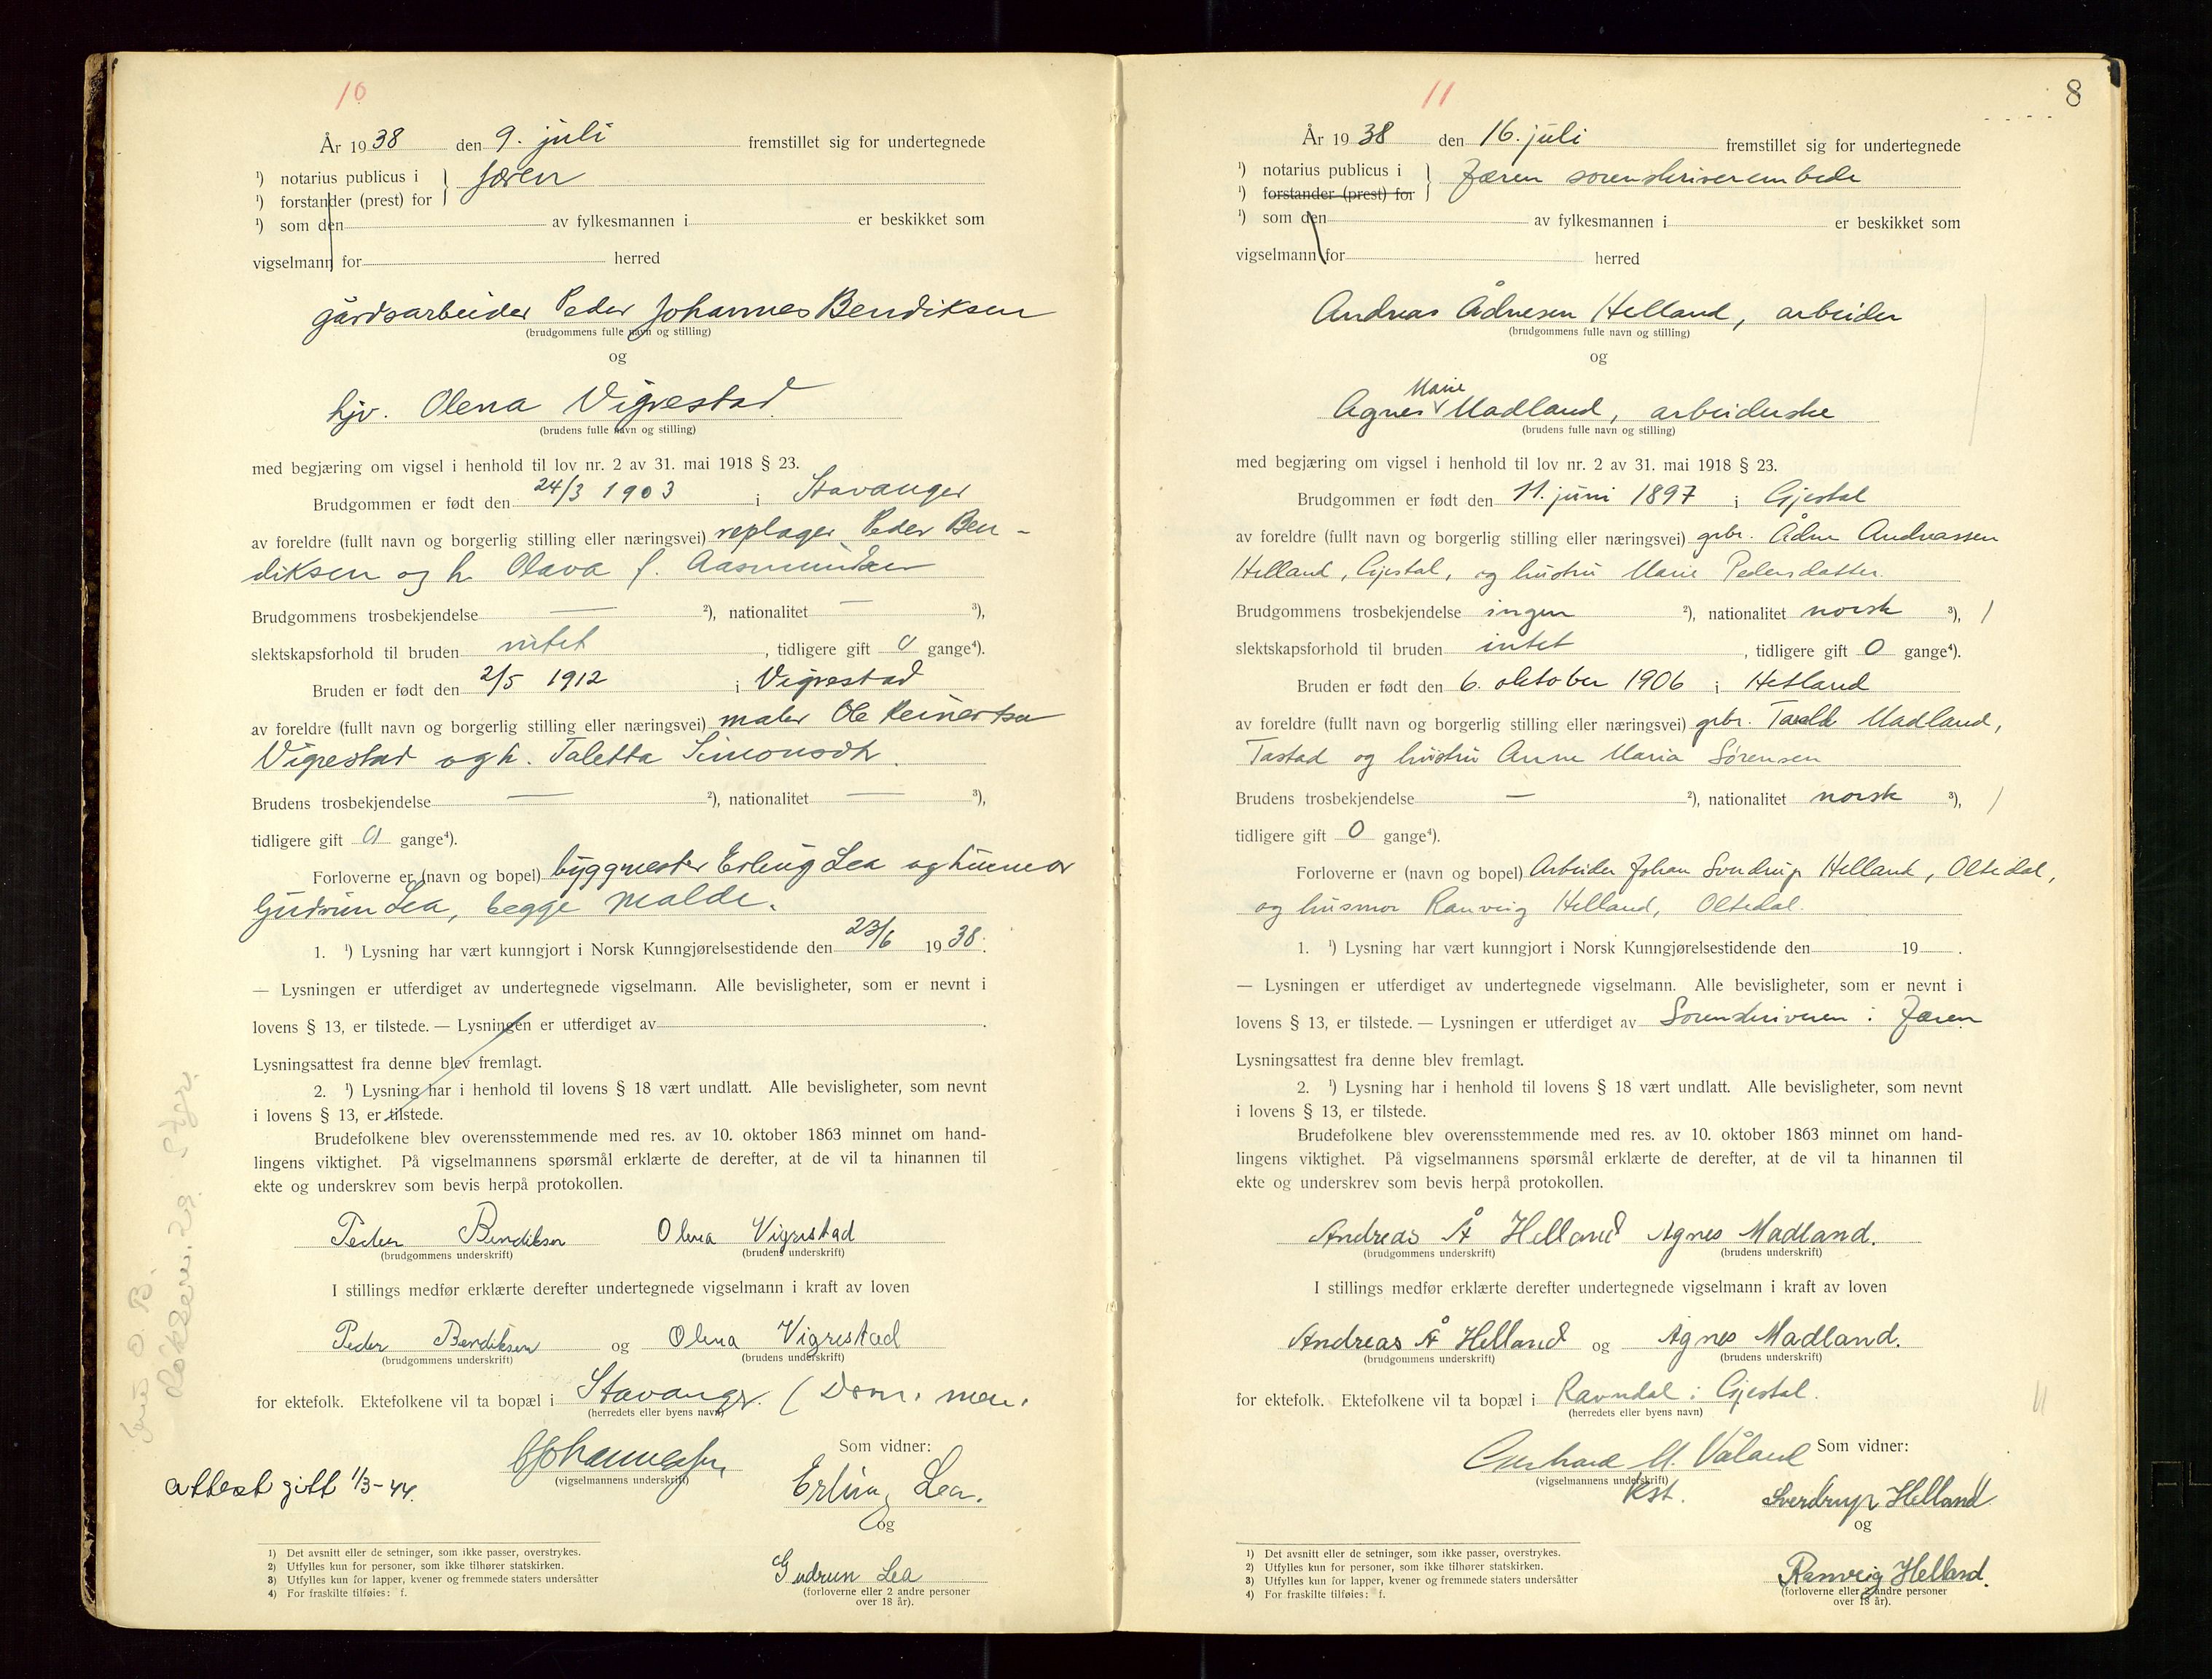 10
År 1938 den 9. juli fremstillet sig for undertegnede
¹) notarius publicus i } Jæren
¹) forstander (prest) for
¹) som den av fylkesmannen i er beskikket som
vigselmann for herred
gårdsarbeider Peder Johannes Bendiksen
(brudgommens fulle navn og stilling)
og
hjv. Olena Vigrestad
(brudens fulle navn og stilling)
med begjæring om vigsel i henhold til lov nr. 2 av 31. mai 1918 § 23.
Brudgommen er født den 24/3 1903 i Stavanger
av foreldre (fullt navn og borgerlig stilling eller næringsvei) repslager Peder Ben-
diksen og h. Olava f. Aasmundsen
Brudgommens trosbekjendelse — ²), nationalitet — ³),
slektskapsforhold til bruden intet, tidligere gift 0 gange⁴).
Bruden er født den 2/5 1912 i Vigrestad
av foreldre (fullt navn og borgerlig stilling eller næringsvei) maler Ole Reinertsen
Vigrestad og h. Taletta Simonsdtr.
Brudens trosbekjendelse — ²), nationalitet — ³),
tidligere gift 0 gange⁴).
Forloverne er (navn og bopel) byggmester Erling Lea og husmor
Gudrun Lea, begge Malde.
1. ¹) Lysning har vært kunngjort i Norsk Kunngjørelsestidende den 23/6 1938.
— Lysningen er utferdiget av undertegnede vigselmann. Alle bevisligheter, som er nevnt i
lovens § 13, er tilstede. — Lysningen er utferdiget av .
Lysningsattest fra denne blev fremlagt.
2. ¹) Lysning har i henhold til lovens § 18 vært undlatt. Alle bevisligheter, som nevnt
i lovens § 13, er tilstede.
Brudefolkene blev overensstemmende med res. av 10. oktober 1863 minnet om hand-
lingens viktighet. På vigselmannens spørsmål erklærte de derefter, at de vil ta hinannen til
ekte og underskrev som bevis herpå protokollen.
Peder Bendiksen Olena Vigrestad
(brudgommens underskrift) (brudens underskrift)
I stillings medfør erklærte derefter undertegnede vigselmann i kraft av loven
Peder Bendiksen og Olena Vigrestad
(brudgommens underskrift) (brudens underskrift)
for ektefolk. Ektefolkene vil ta bopæl i Stavanger. (Dom.
(herredets eller byens navn)
Som vidner:
(vigselmannens underskrift)
attest gitt 1/3-44.
Erling Lea.
og
Gudrun Lea
(forloverne eller 2 andre personer
over 18 år).
1) Det avsnitt eller de setninger, som ikke passer, overstrykes.
2) Utfylles kun for personer, som ikke tilhører statskirken.
3) Utfylles kun for lapper, kvener og fremmede staters undersåtter
4) For fraskilte tilføies: f.
8
11
År 1938 den 16. juli fremstillet sig for undertegnede
¹) notarius publicus i } Jæren sorenskriverembede
¹) forstander (prest) for
¹) som den av fylkesmannen i er beskikket som
vigselmann for herred
Andreas Ådnesen Helland, arbeider
(brudgommens fulle navn og stilling)
og
Marie
Agnes Madland, arbeiderske
(brudens fulle navn og stilling)
med begjæring om vigsel i henhold til lov nr. 2 av 31. mai 1918 § 23.
Brudgommen er født den 11. juni 1897 i Gjestal
av foreldre (fullt navn og borgerlig stilling eller næringsvei) gbr. Ådne Andreassen
Helland, Gjestal, og hustru Marie Pedersdatter.
Brudgommens trosbekjendelse ingen ²), nationalitet norsk ³),
slektskapsforhold til bruden intet, tidligere gift 0 gange⁴).
Bruden er født den 6. oktober 1906 i Hetland
av foreldre (fullt navn og borgerlig stilling eller næringsvei) gbr. Madland,
Tastad og hustru Anne Maria Sørensen
Brudens trosbekjendelse — ²), nationalitet norsk ³),
tidligere gift 0 gange⁴).
Forloverne er (navn og bopel) Arbeider Johan Sverdrup Helland, Oltedal,
og husmor Ranveig Helland, Oltedal.
1. ¹) Lysning har vært kunngjort i Norsk Kunngjørelsestidende den 19 .
— Lysningen er utferdiget av undertegnede vigselmann. Alle bevisligheter, som er nevnt i
lovens § 13, er tilstede. — Lysningen er utferdiget av Sorenskriveren i Jæren.
Lysningsattest fra denne blev fremlagt.
2. ¹) Lysning har i henhold til lovens § 18 vært undlatt. Alle bevisligheter, som nevnt
i lovens § 13, er tilstede.
Brudefolkene blev overensstemmende med res. av 10. oktober 1863 minnet om hand-
lingens viktighet. På vigselmannens spørsmål erklærte de derefter, at de vil ta hinannen til
ekte og underskrev som bevis herpå protokollen.
Andreas Å Helland Agnes Madland.
(brudgommens underskrift) (brudens underskrift)
I stillings medfør erklærte derefter undertegnede vigselmann i kraft av loven
Andreas Å Helland og Agnes Madland.
(brudgommens underskrift) (brudens underskrift)
for ektefolk. Ektefolkene vil ta bopæl i Ravndal i Gjestal.
(herredets eller byens navn)
Gerhard M. Våland Som vidner:
(vigselmannens underskrift)
kst. Sverdrup Helland
og
Ranveig Helland.
(forloverne eller 2 andre personer
over 18 år).
1) Det avsnitt eller de setninger, som ikke passer, overstrykes.
2) Utfylles kun for personer, som ikke tilhører statskirken.
3) Utfylles kun for lapper, kvener og fremmede staters undersåtter
4) For fraskilte tilføies: f.